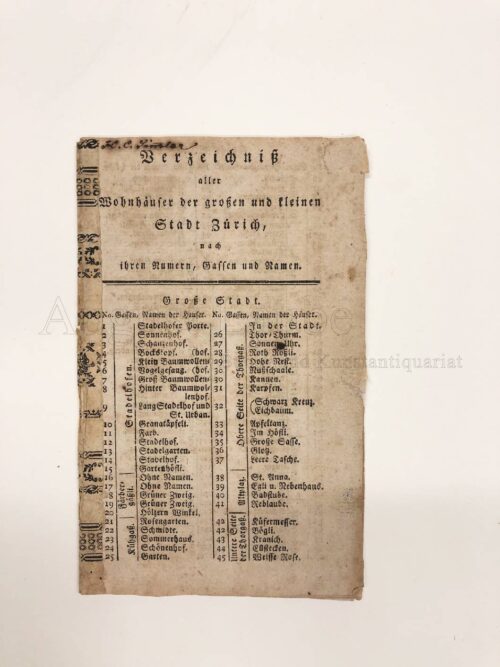 H. C. Zimmler
Verzeichniß
aller
Wohnhäuser der großen und kleinen
Stadt Zürich,
nach
ihren Numern, Gassen und Namen.
Große Stadt.
No. Gassen. Namen der Häuser.
Stadelhofen.
1 Stadelhofer Porte.
2 Sonnenhof.
3 Schanzenhof.
4 Bockskopf. (hof.
5 Klein Baumwollen-
6 Vogelgesang. (hof.
7 Groß Baumwollen-
8 Hinter Baumwol-
lenhof.
9 Lang Stadelhof und
St. Urban.
10 Granatäpfeli.
11 Farb.
12 Stadelhof.
13 Stadelgarten.
14 Stadelhof.
15 Gartenhöfli.
Färber-
gäßli.
16 Ohne Namen.
17 Ohne Namen.
18 Grüner Zweig.
19 Grüner Zweig.
20 Hölzern Winkel.
Kühgaß.
21 Rosengarten.
22 Schmidte.
23 Sommerhaus.
24 Schönenhof.
25 Garten.
No. Gassen. Namen der Häuser.
In der Stadt.
Obere Seite der Thorgaß.
26 Thor-Thurm.
27 Sonnen-Uhr.
28 Roth Rößli.
29 Hohe Nest.
30 Nußschaale.
30 Kannen.
31 Karpfen.
32 (Schwarz Kreuz.
(Eichbaum.
33 Apfeltanz.
34 Im Höfli.
35 Große Sasse.
36 Glog.
37 Leere Tasche.
38 St. Anna.
39 Esli u. Nebenhaus.
40 Badstube.
41 Reblaube.
Untere Seite
der Thorgaß.
42 Küfermesser.
42 Bögli.
43 Kranich.
44 Elstecken.
45 Weisse Rose.